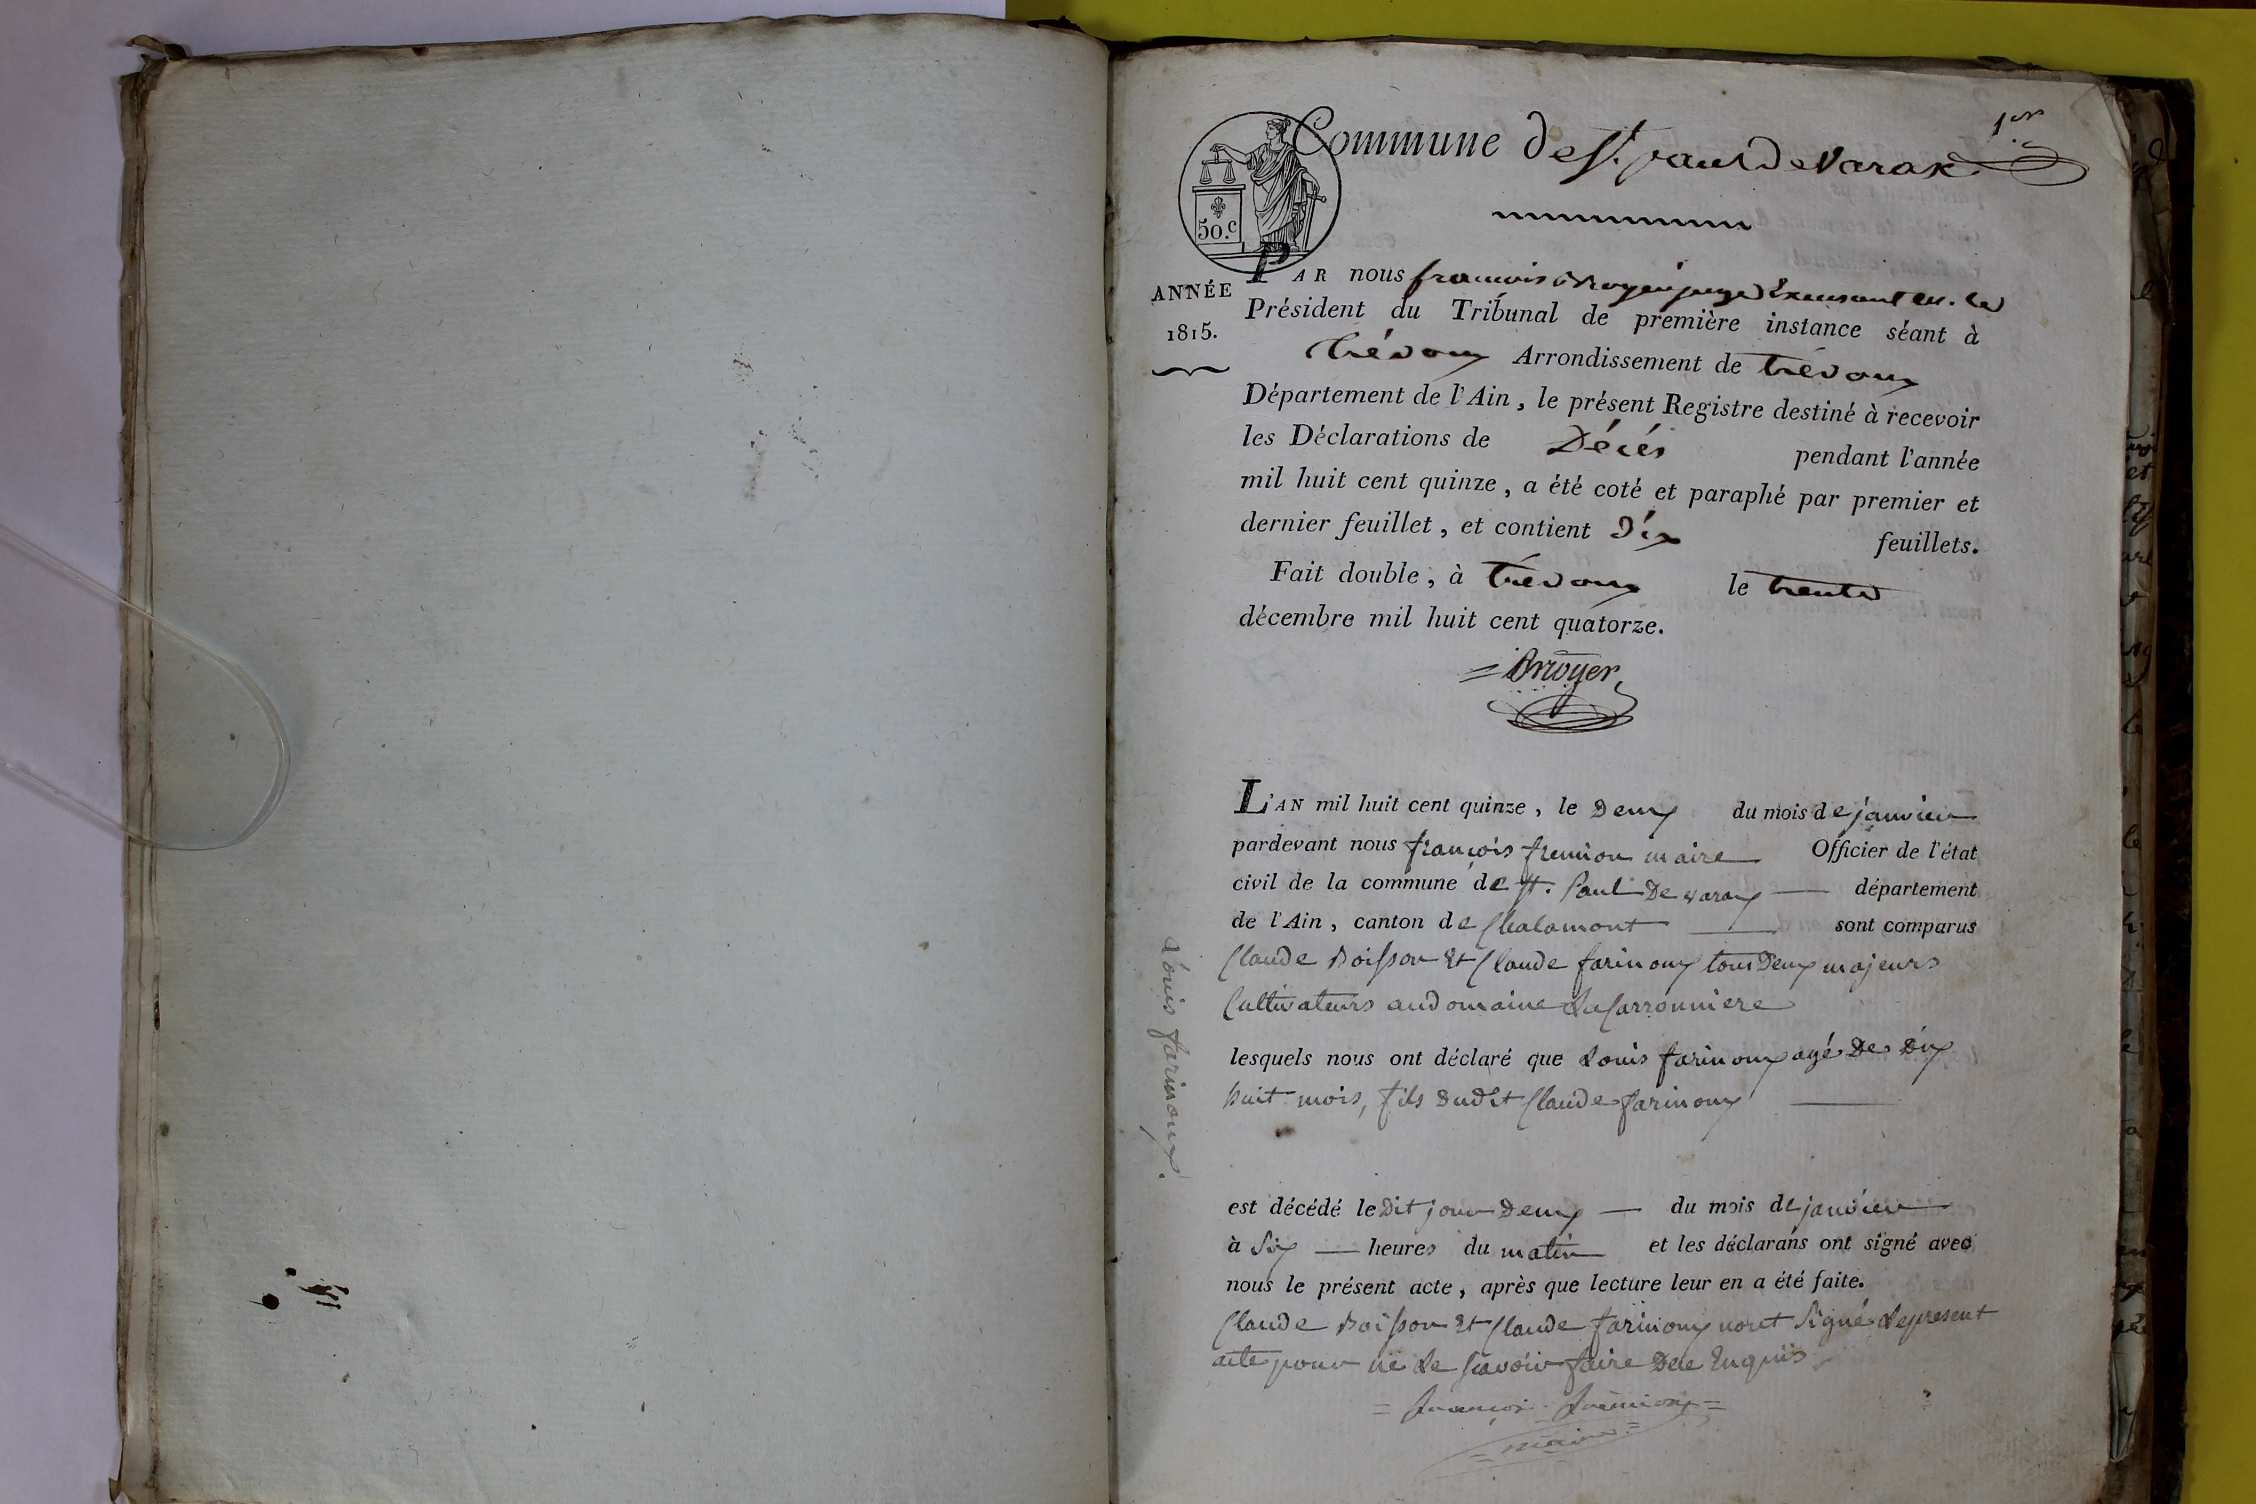 1er
Commune de St. paul De Varax
50.c
ANNÉE
1815.
PAR nous francois Orroyer juge Exercant en. le
Président du Tribunal de première instance séant à
trévoux Arrondissement de trévoux
Département de l'Ain, le présent Registre destiné à recevoir
les Déclarations de Décés pendant l'année
mil huit cent quinze, a été coté et paraphé par premier et
dernier feuillet, et contient Dix feuillets.
Fait double, à trévoux le trente
décembre mil huit cent quatorze.
L'AN mil huit cent quinze, le Deux du mois de janvier
pardevant nous françois fremion maire Officier de l'état
civil de la commune de St. Paul De varax département
de l'Ain, canton de Chalamont sont comparus
Claude Boisson Et Claude farinoux tous Deux majeurs
Cultivateurs au domaine La Carronniere
Louis farinoux.
lesquels nous ont déclaré que Louis farinoux agé De Dix
huit mois, fils dudit Claude farinoux
est décédé le Dit jour Deux du mois de janvier
à Six heures du matin et les déclarans ont signé avec
nous le présent acte, après que lecture leur en a été faite.
Claude Boisson Et Claude farinoux nont Signé Le present
acte pour ne Le Savoir faire De ce Enquis
= françois fremion =
= maire =